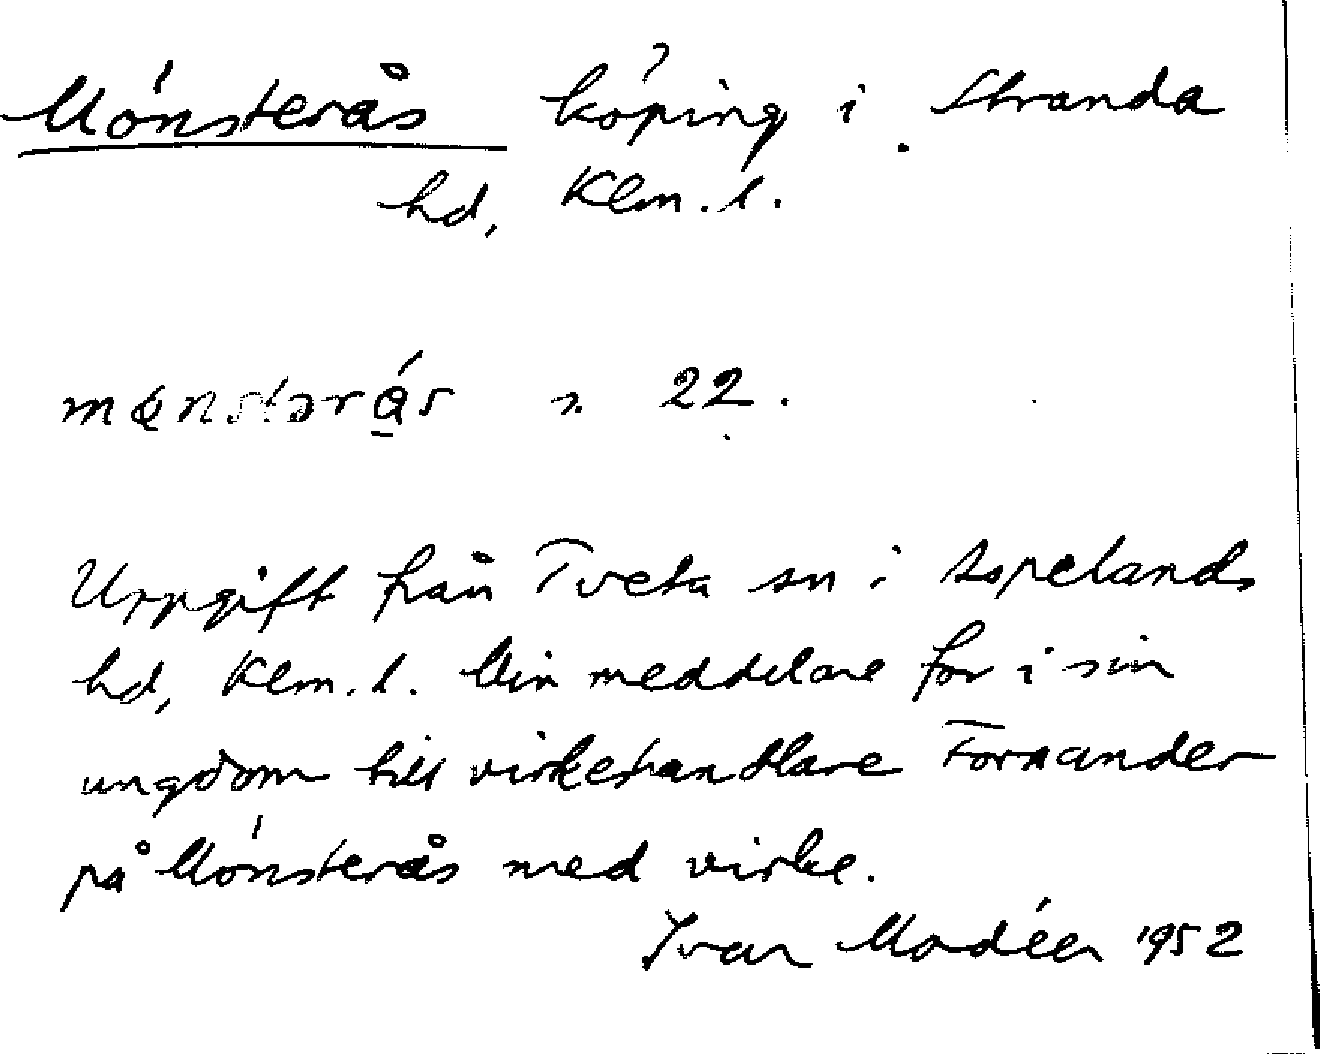 Mönsterås köping i Stranda
hd, Klm. l.
22.
Uppgift från Tveta sn i Aspelands
hd, Klm. l. Min meddelare for i sin
ungdom till virkehandlare Fornander
på Mönsterås med virke.
Ivar Modéer 1952